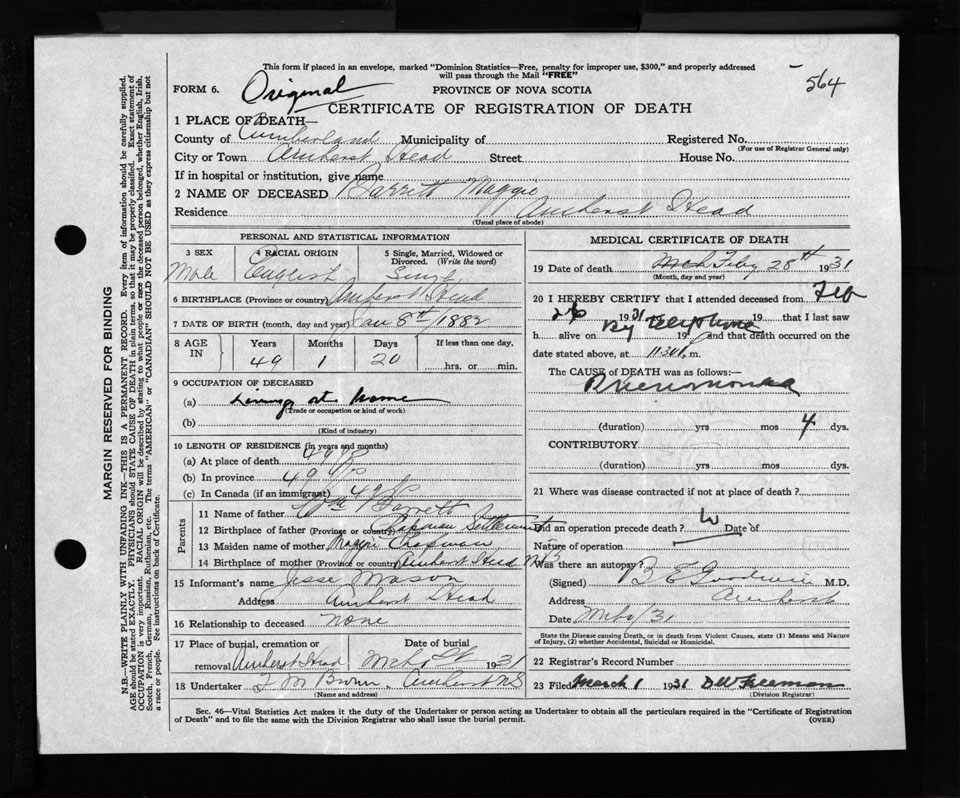 This form if placed in an envelope, marked "Dominion Statistics—Free, penalty for improper use, $300," and properly addressed
will pass through the Mail "FREE"
564
FORM 6. Original PROVINCE OF NOVA SCOTIA
CERTIFICATE OF REGISTRATION OF DEATH
1 PLACE OF DEATH—
County of Cumberland Municipality of Registered No.
(For use of Registrar General only)
City or Town Amherst Head Street House No.
If in hospital or institution, give name
2 NAME OF DECEASED Barrett Maggie
Residence Amherst Head
(Usual place of abode)
PERSONAL AND STATISTICAL INFORMATION
3 SEX 4 RACIAL ORIGIN 5 Single, Married, Widowed or
Divorced. (Write the word)
Male English Single
6 BIRTHPLACE (Province or country) Amherst Head
7 DATE OF BIRTH (month, day and year) Jan 8th/1882
8 AGE IN Years Months Days If less than one day,
49 1 20 hrs. or min.
9 OCCUPATION OF DECEASED
(a) Living at home
(Trade or occupation or kind of work)
(b)
(Kind of industry)
10 LENGTH OF RESIDENCE (in years and months)
(a) At place of death 49
(b) In province 49
(c) In Canada (if an immigrant) 49
Parents
11 Name of father Wm Barrett
12 Birthplace of father (Province or country) Chapman Settlement
13 Maiden name of mother Maggie Chapman
14 Birthplace of mother (Province or country) Amherst Head
15 Informant's name Jesse Mason
Address Amherst Head
16 Relationship to deceased none
17 Place of burial, cremation or Date of burial
removal Amherst Head 1931
18 Undertaker F M Brown. Amherst NS
(Name and address)
MEDICAL CERTIFICATE OF DEATH
19 Date of death Mch Feby 28th 1931
(Month, day and year)
20 I HEREBY CERTIFY that I attended deceased from Feb
26 1931 19 that I last saw
by Telephone
h alive on 19 and that death occurred on the
date stated above, at 11:30 m.
The CAUSE of DEATH was as follows:—
Pneumonia
(duration) yrs mos 4 dys.
CONTRIBUTORY
(duration) yrs mos dys.
21 Where was disease contracted if not at place of death?
Did an operation precede death? Date of
Nature of operation
Was there an autopsy?
(Signed) B E Goodwin M.D.
Address Amherst
Date
State the Disease causing Death, or in death from Violent Causes, state (1) Means and Nature
of Injury, (2) whether Accidental, Suicidal or Homicidal.
22 Registrar's Record Number
23 Filed March 1 1931 D W Freeman
(Division Registrar)
Sec. 46—Vital Statistics Act makes it the duty of the Undertaker or person acting as Undertaker to obtain all the particulars required in the "Certificate of Registration
of Death" and to file the same with the Division Registrar who shall issue the burial permit. (OVER)
MARGIN RESERVED FOR BINDING
N.B.—WRITE PLAINLY WITH UNFADING INK—THIS IS A PERMANENT RECORD. Every item of information should be carefully supplied.
AGE should be stated EXACTLY. PHYSICIANS should STATE CAUSE OF DEATH in plain terms, so that it may be properly classified. Exact statement of
OCCUPATION is very important. RACIAL ORIGIN will be described by stating to what people or race the deceased person belonged, whether English, Irish,
Scotch, French, German, Russian, Ruthenian, etc. The terms "AMERICAN" or "CANADIAN" SHOULD NOT BE USED as they express citizenship but not
a race or people. See instructions on back of Certificate.